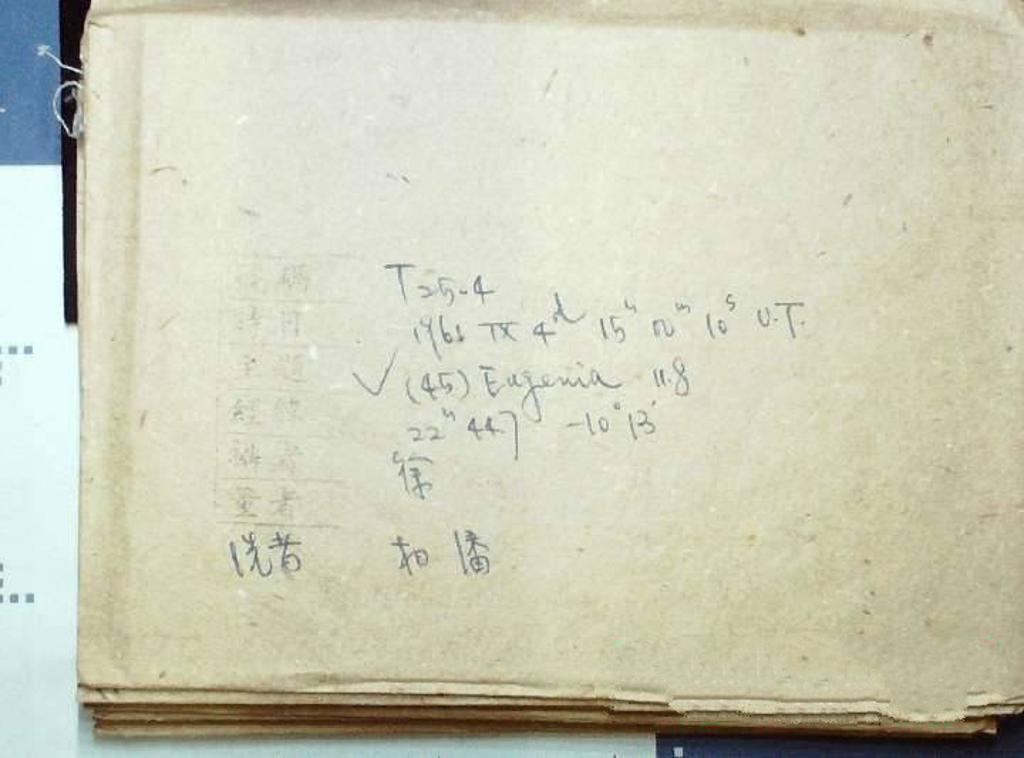 號碼 T25-4
時日 1961 IX 4ᵈ 15ʰ 02ᵐ 10ˢ U.T.
主題 ✓ (45) Eugenia 11.8
22ʰ 44.7 -10° 13'
攝者 徐
量者
洗者 柏 潘